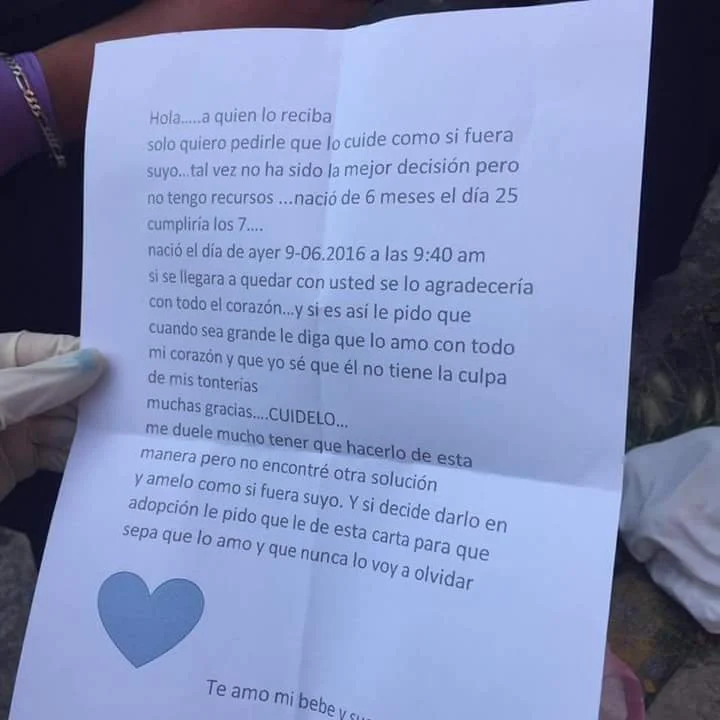 Hola.....a quien lo reciba
solo quiero pedirle que lo cuide como si fuera
suyo...tal vez no ha sido la mejor decisión pero
no tengo recursos ...nació de 6 meses el día 25
cumpliría los 7....
nació el día de ayer 9-06.2016 a las 9:40 am
si se llegara a quedar con usted se lo agradecería
con todo el corazón...y si es así le pido que
cuando sea grande le diga que lo amo con todo
mi corazón y que yo sé que él no tiene la culpa
de mis tonterías
muchas gracias....CUIDELO...
me duele mucho tener que hacerlo de esta
manera pero no encontré otra solución
y amelo como si fuera suyo. Y si decide darlo en
adopción le pido que le de esta carta para que
sepa que lo amo y que nunca lo voy a olvidar
Te amo mi bebe y